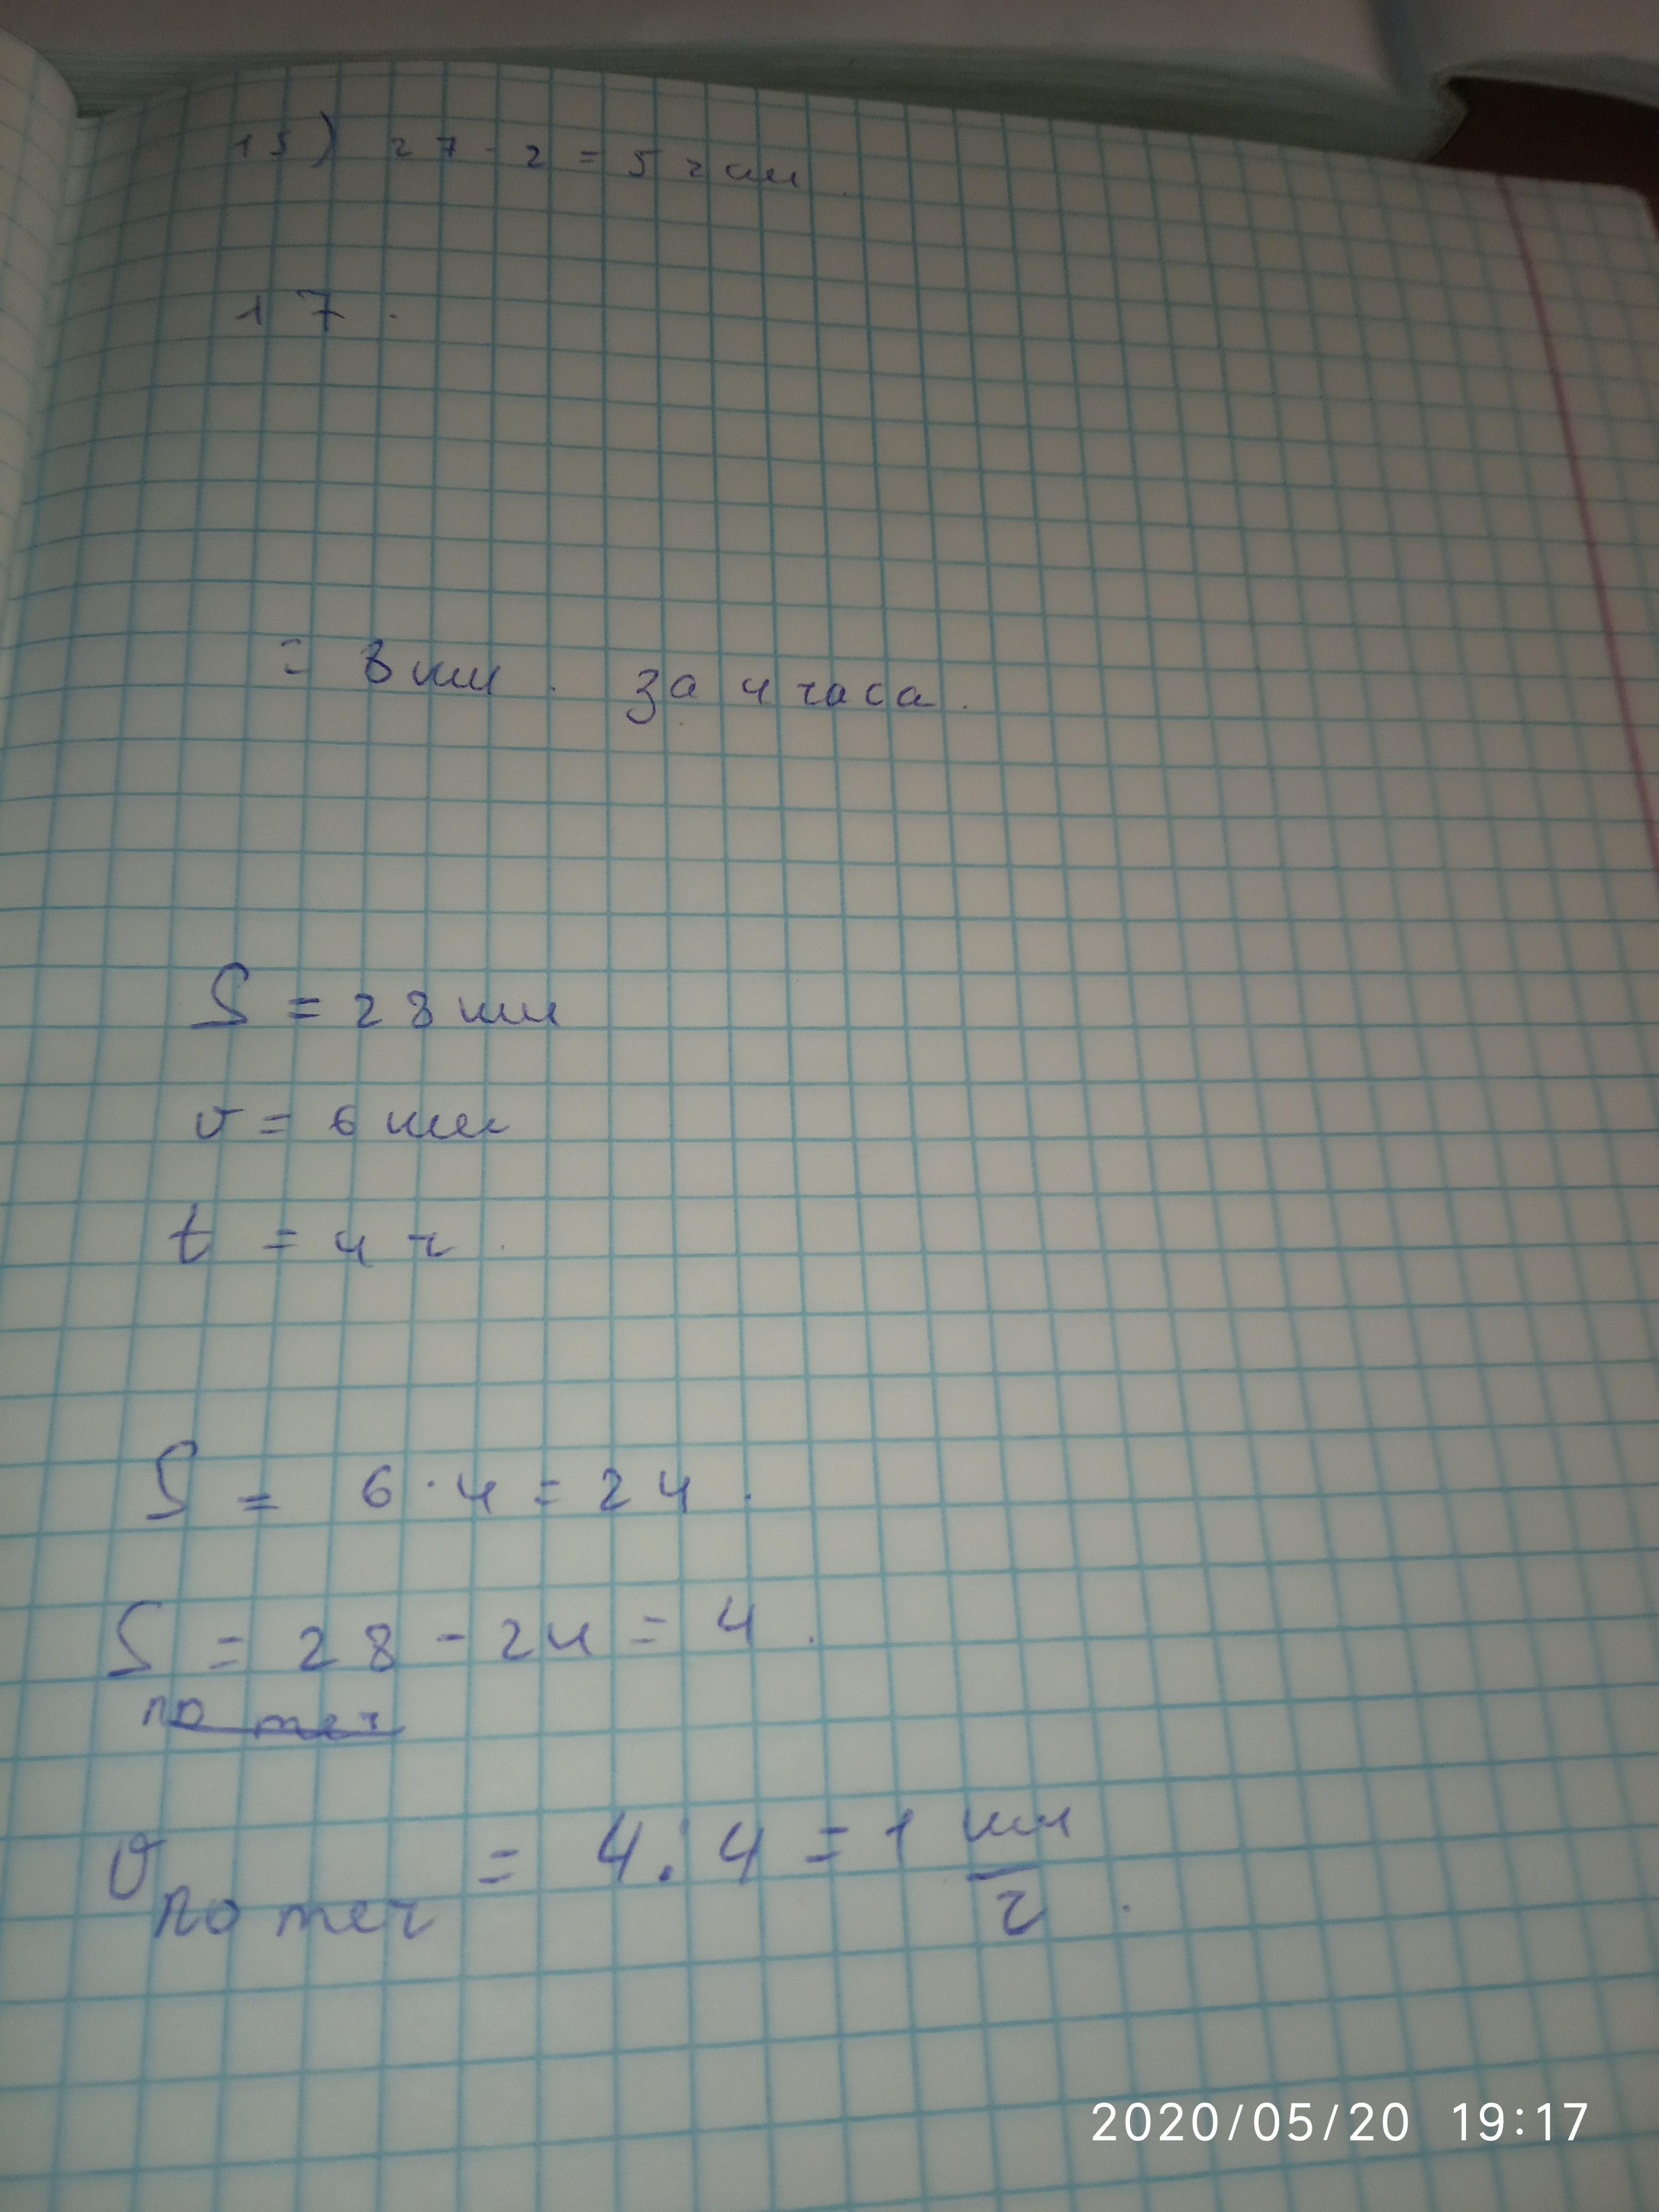 15) 27 · 2 = 54 км
17.
= 8 км. за 4 часа.
S = 28 км
v = 6 км
t = 4 ч.
S = 6 · 4 = 24.
S = 28 - 24 = 4.
по теч
v по теч = 4 : 4 = 1 км/ч.
2020/05/20 19:17